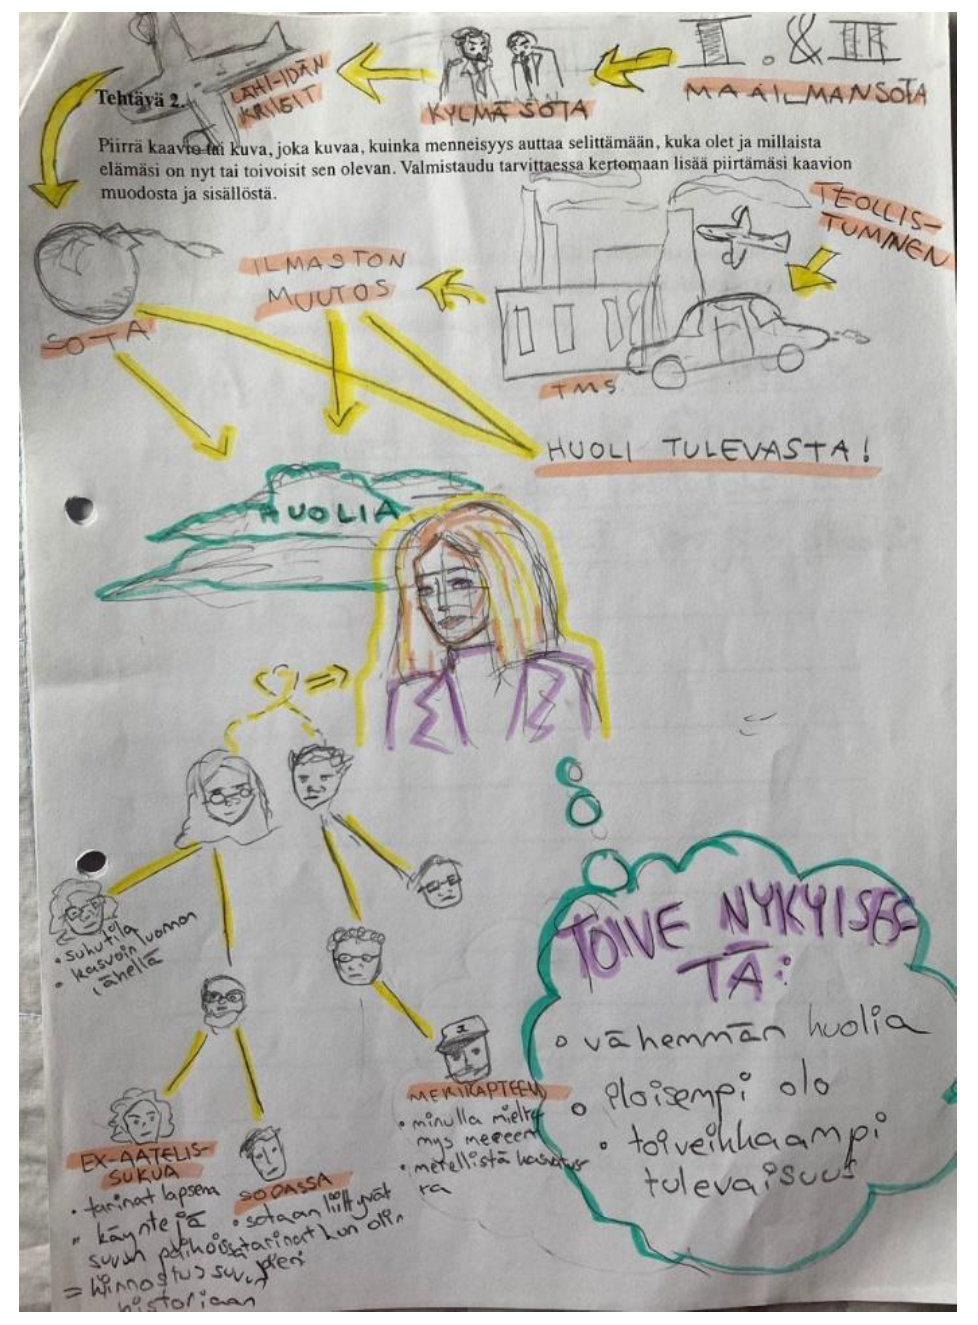 II. & III
MAAILMANSOTA
KYLMÄ SOTA
LÄHI-IDÄN
KRIISIT
Tehtävä 2.
Piirrä kaavio tai kuva, joka kuvaa, kuinka menneisyys auttaa selittämään, kuka olet ja millaista
elämäsi on nyt tai toivoisit sen olevan. Valmistaudu tarvittaessa kertomaan lisää piirtämäsi kaavion
muodosta ja sisällöstä.
TEOLLIS-
TUMINEN
ILMASTON
MUUTOS
SOTA
TMS
HUOLI TULEVASTA!
HUOLIA
• sukutila
• kasvoin luonnon
lähellä
TOIVE NYKYISES-
TÄ:
• vähemmän huolia
• iloisempi olo
• toiveikkaampi
tulevaisuus
MERIKAPTEENI
• minulla mielty-
mys mereen
• merellistä kasvatus-
ta
EX-AATELIS-
SUKUA
• tarinat lapsena
• käyntejä
suvun
= kiinnostus suvun
historiaan
SODASSA
• sotaan liittyvät
tarinat kun olin
pieni